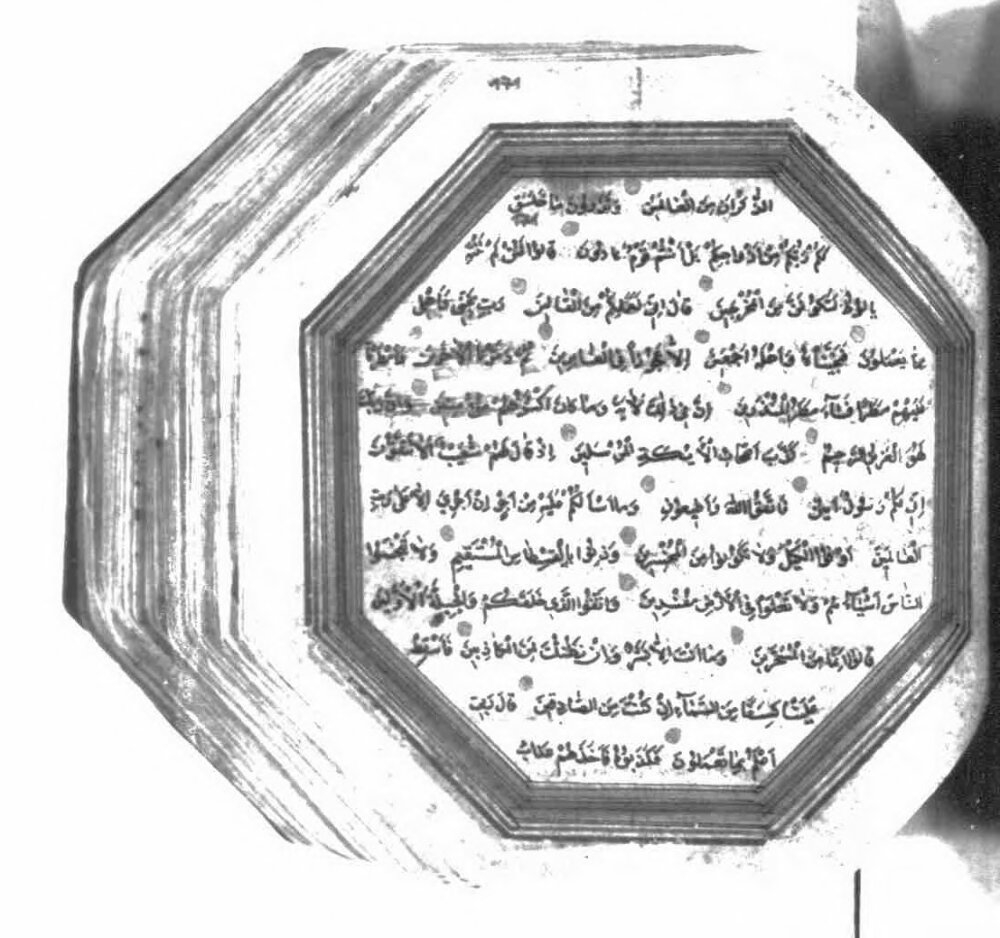 الذكران من العالمين وتذرون ما خلق
لكم ربكم من ازواجكم بل انتم قوم عادون قالوا لئن لم تنته
يا لوط لتكونن من المخرجين قال اني لعملكم من القالين رب نجني واهلي
مما يعملون فنجيناه واهله اجمعين الا عجوزا في الغابرين ثم دمرنا الاخرين وامطرنا
عليهم مطرا فسآء مطر المنذرين ان في ذلك لاية وما كان اكثرهم مؤمنين وان ربك
لهو العزيز الرحيم كذب اصحاب الأيكة المرسلين اذ قال لهم شعيب ألا تتقون
اني لكم رسول امين فاتقوا الله واطيعون وما اسألكم عليه من اجر ان اجري الا على رب
العالمين اوفوا الكيل ولا تكونوا من المخسرين وزنوا بالقسطاس المستقيم ولا تبخسوا
الناس اشيآءهم ولا تعثوا في الارض مفسدين واتقوا الذي خلقكم والجبلة الاولين
قالوا انما انت من المسحرين وما انت الا بشر وان نظنك لمن الكاذبين فاسقط
علينا كسفا من السمآء ان كنت من الصادقين قال ربي
اعلم بما تعملون فكذبوه فاخذهم عذاب